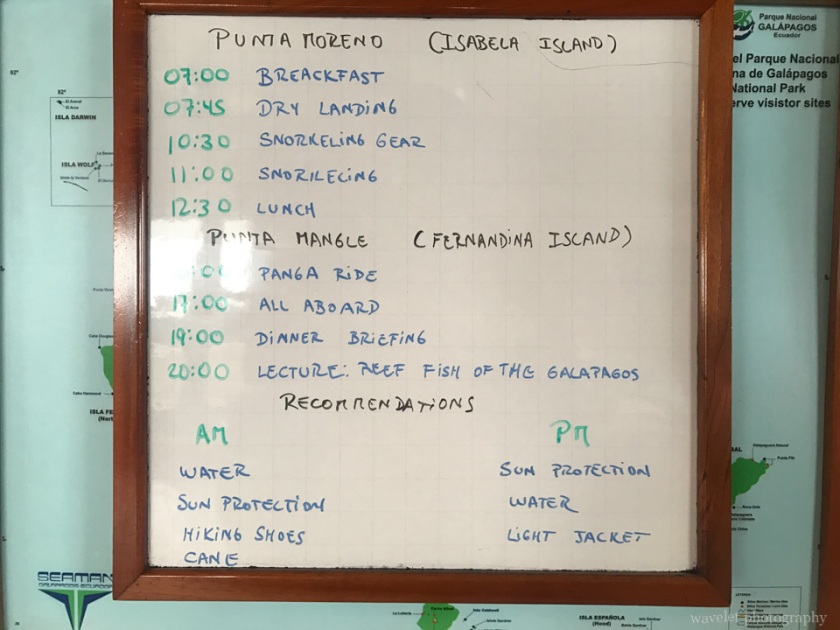 PUNTA MORENO (ISABELA ISLAND)
07:00 BREACKFAST
07:45 DRY LANDING
10:30 SNORKELING GEAR
11:00 SNORILECING
12:30 LUNCH
PUNTA MANGLE (FERNANDINA ISLAND)
:00 PANGA RIDE
17:00 ALL ABOARD
19:00 DINNER BRIEFING
20:00 LECTURE: REEF FISH OF THE GALAPAGOS
RECOMMENDATIONS
AM PM
WATER SUN PROTECTION
SUN PROTECTION WATER
HIKING SHOES LIGHT JACKET
CANE
Parque Nacional
GALÁPAGOS
Ecuador
el Parque Nacional
na de Galápagos
National Park
erve visistor sites
92°
ISLA DARWIN
ISLA WOLF
ISLA FE
SEAMAN
ISLA ESPAÑOLA
(Hood)
wavelet photography